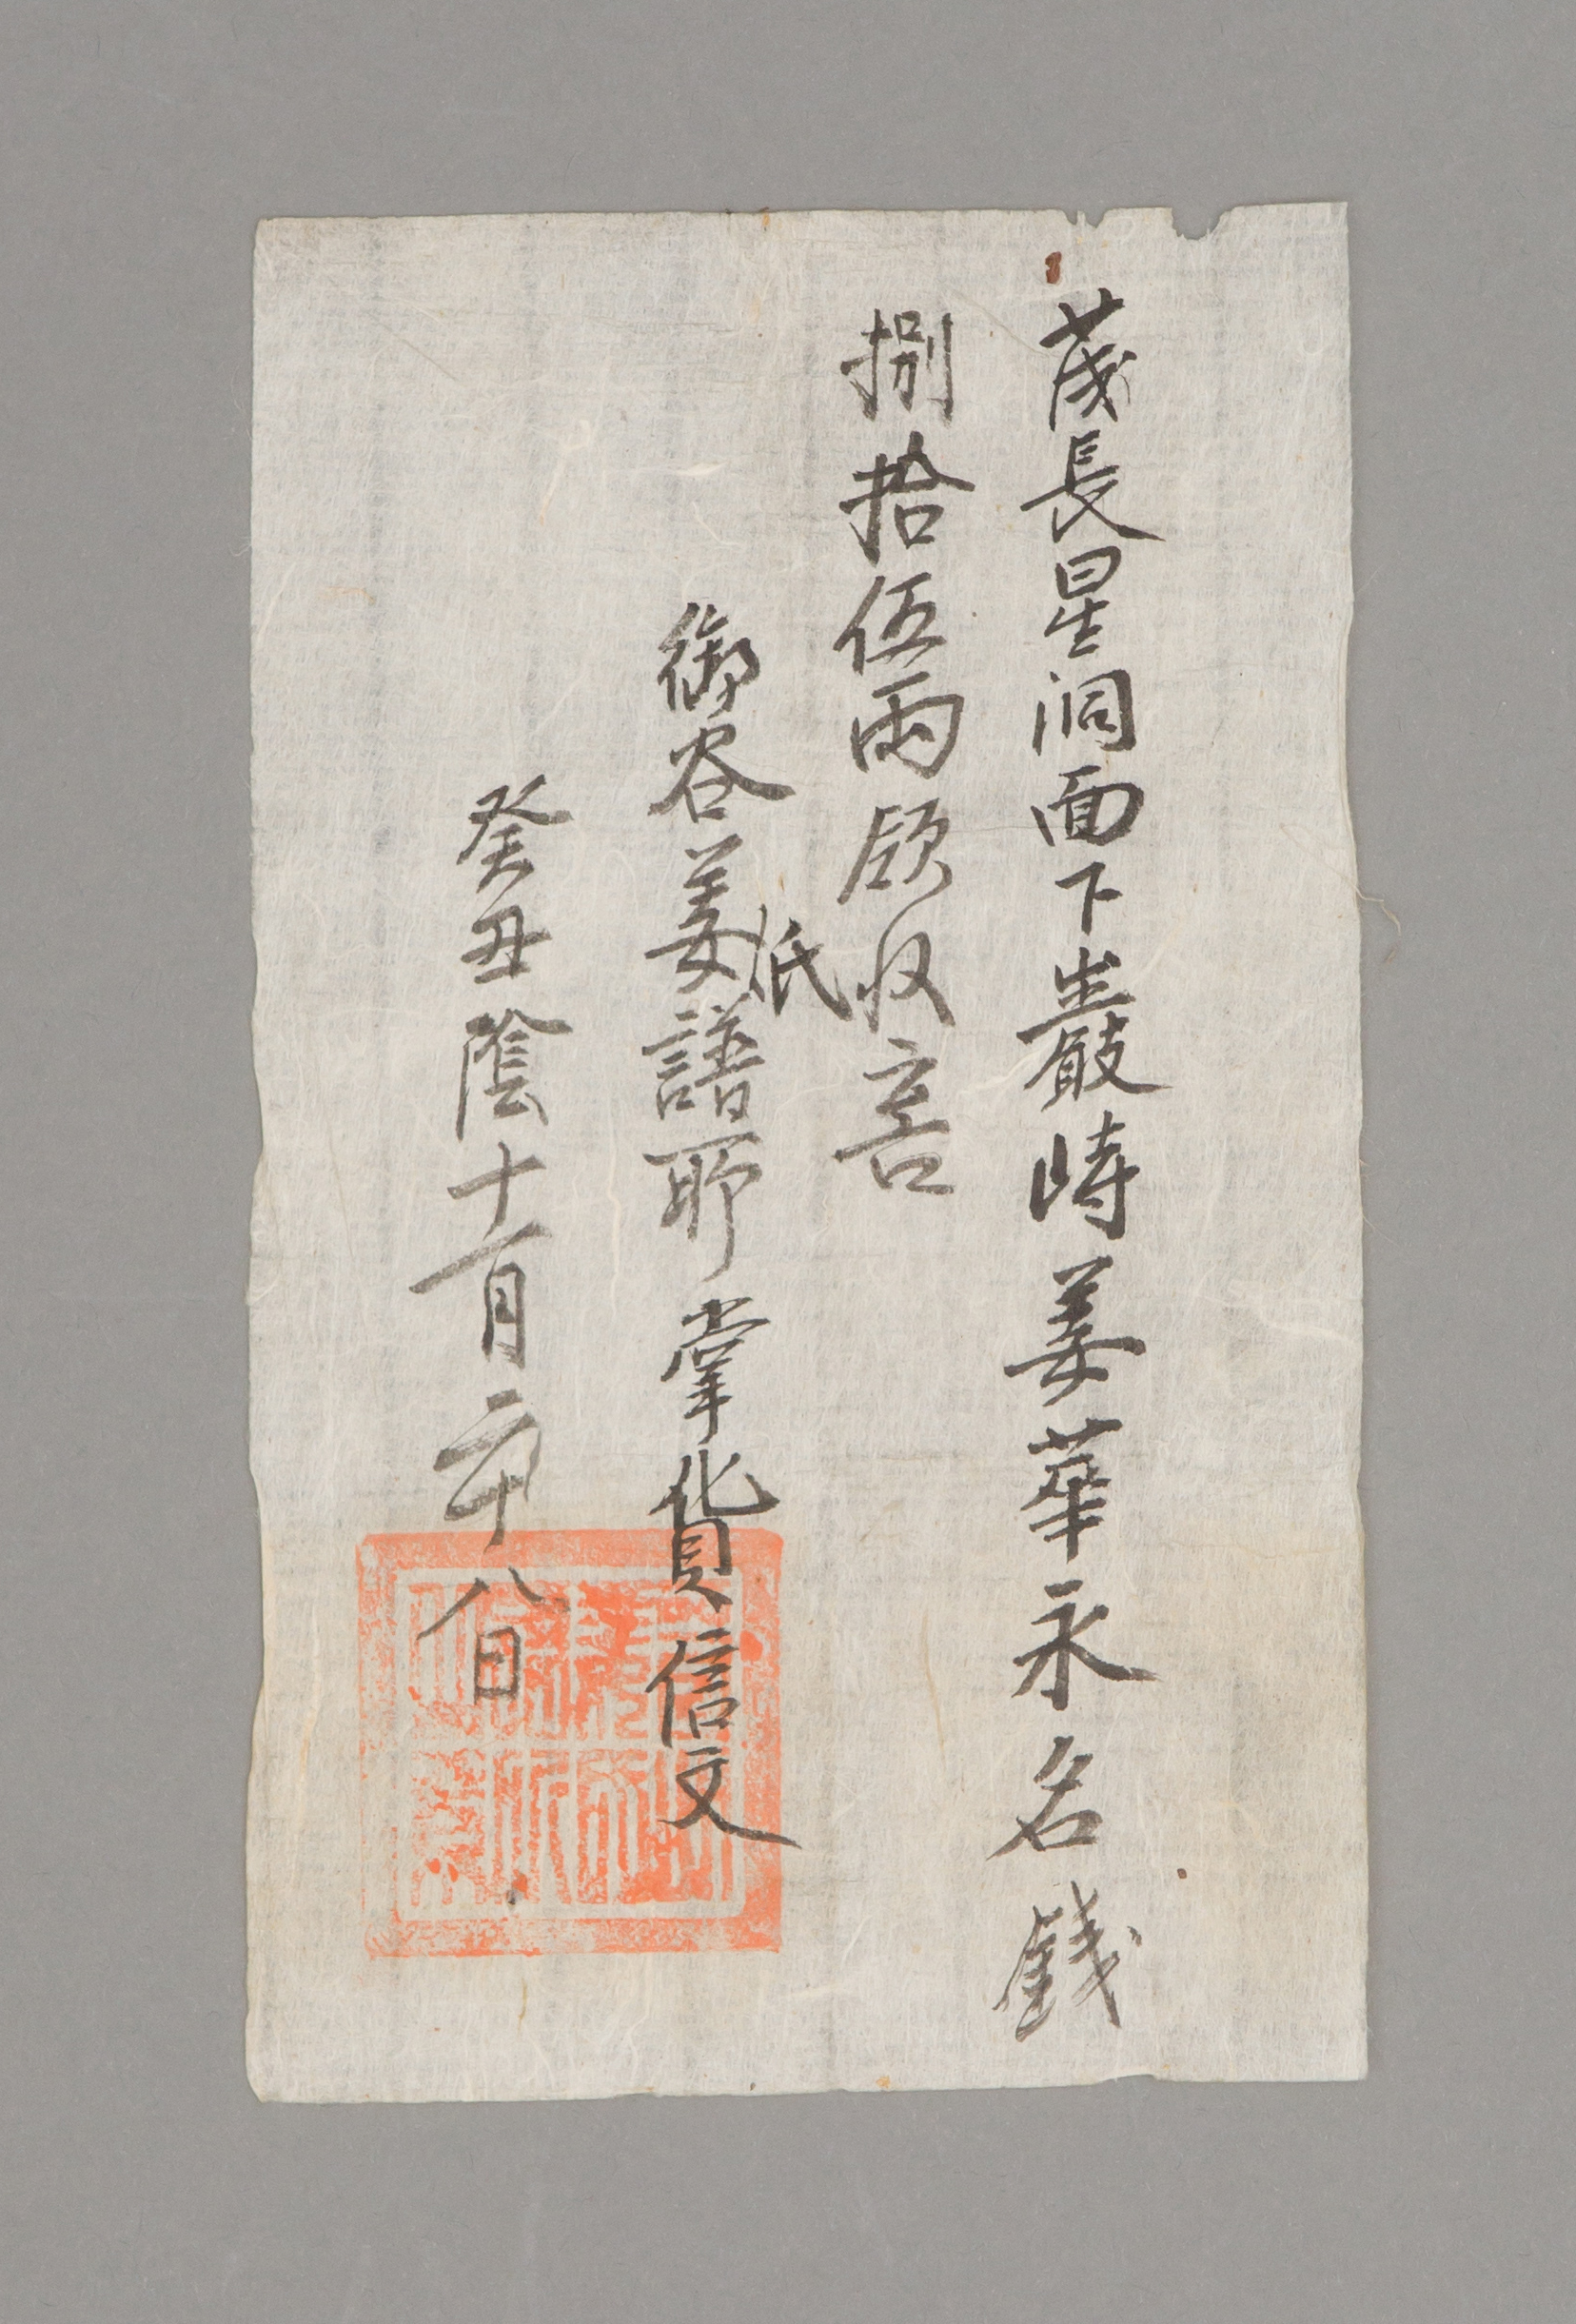 茂長星洞面下巖峙姜華永名錢
捌拾伍兩領收
御谷姜氏譜所掌貨信文
癸丑陰十一月二十八日